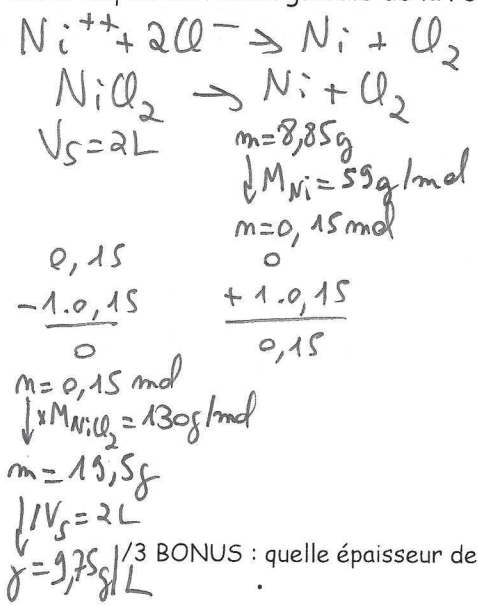 Ni⁺⁺ + 2Cl⁻ → Ni + Cl₂
NiCl₂ → Ni + Cl₂
Vs = 2L m = 8,85g
↓ M Ni = 59g/mol
n = 0,15 mol
0,15 0
-1.0,15 +1.0,15
0 0,15
n = 0,15 mol
↓ x M NiCl₂ = 130g/mol
m = 19,5g
↓ /Vs = 2L
γ = 9,75g/L /3 BONUS : quelle épaisseur de